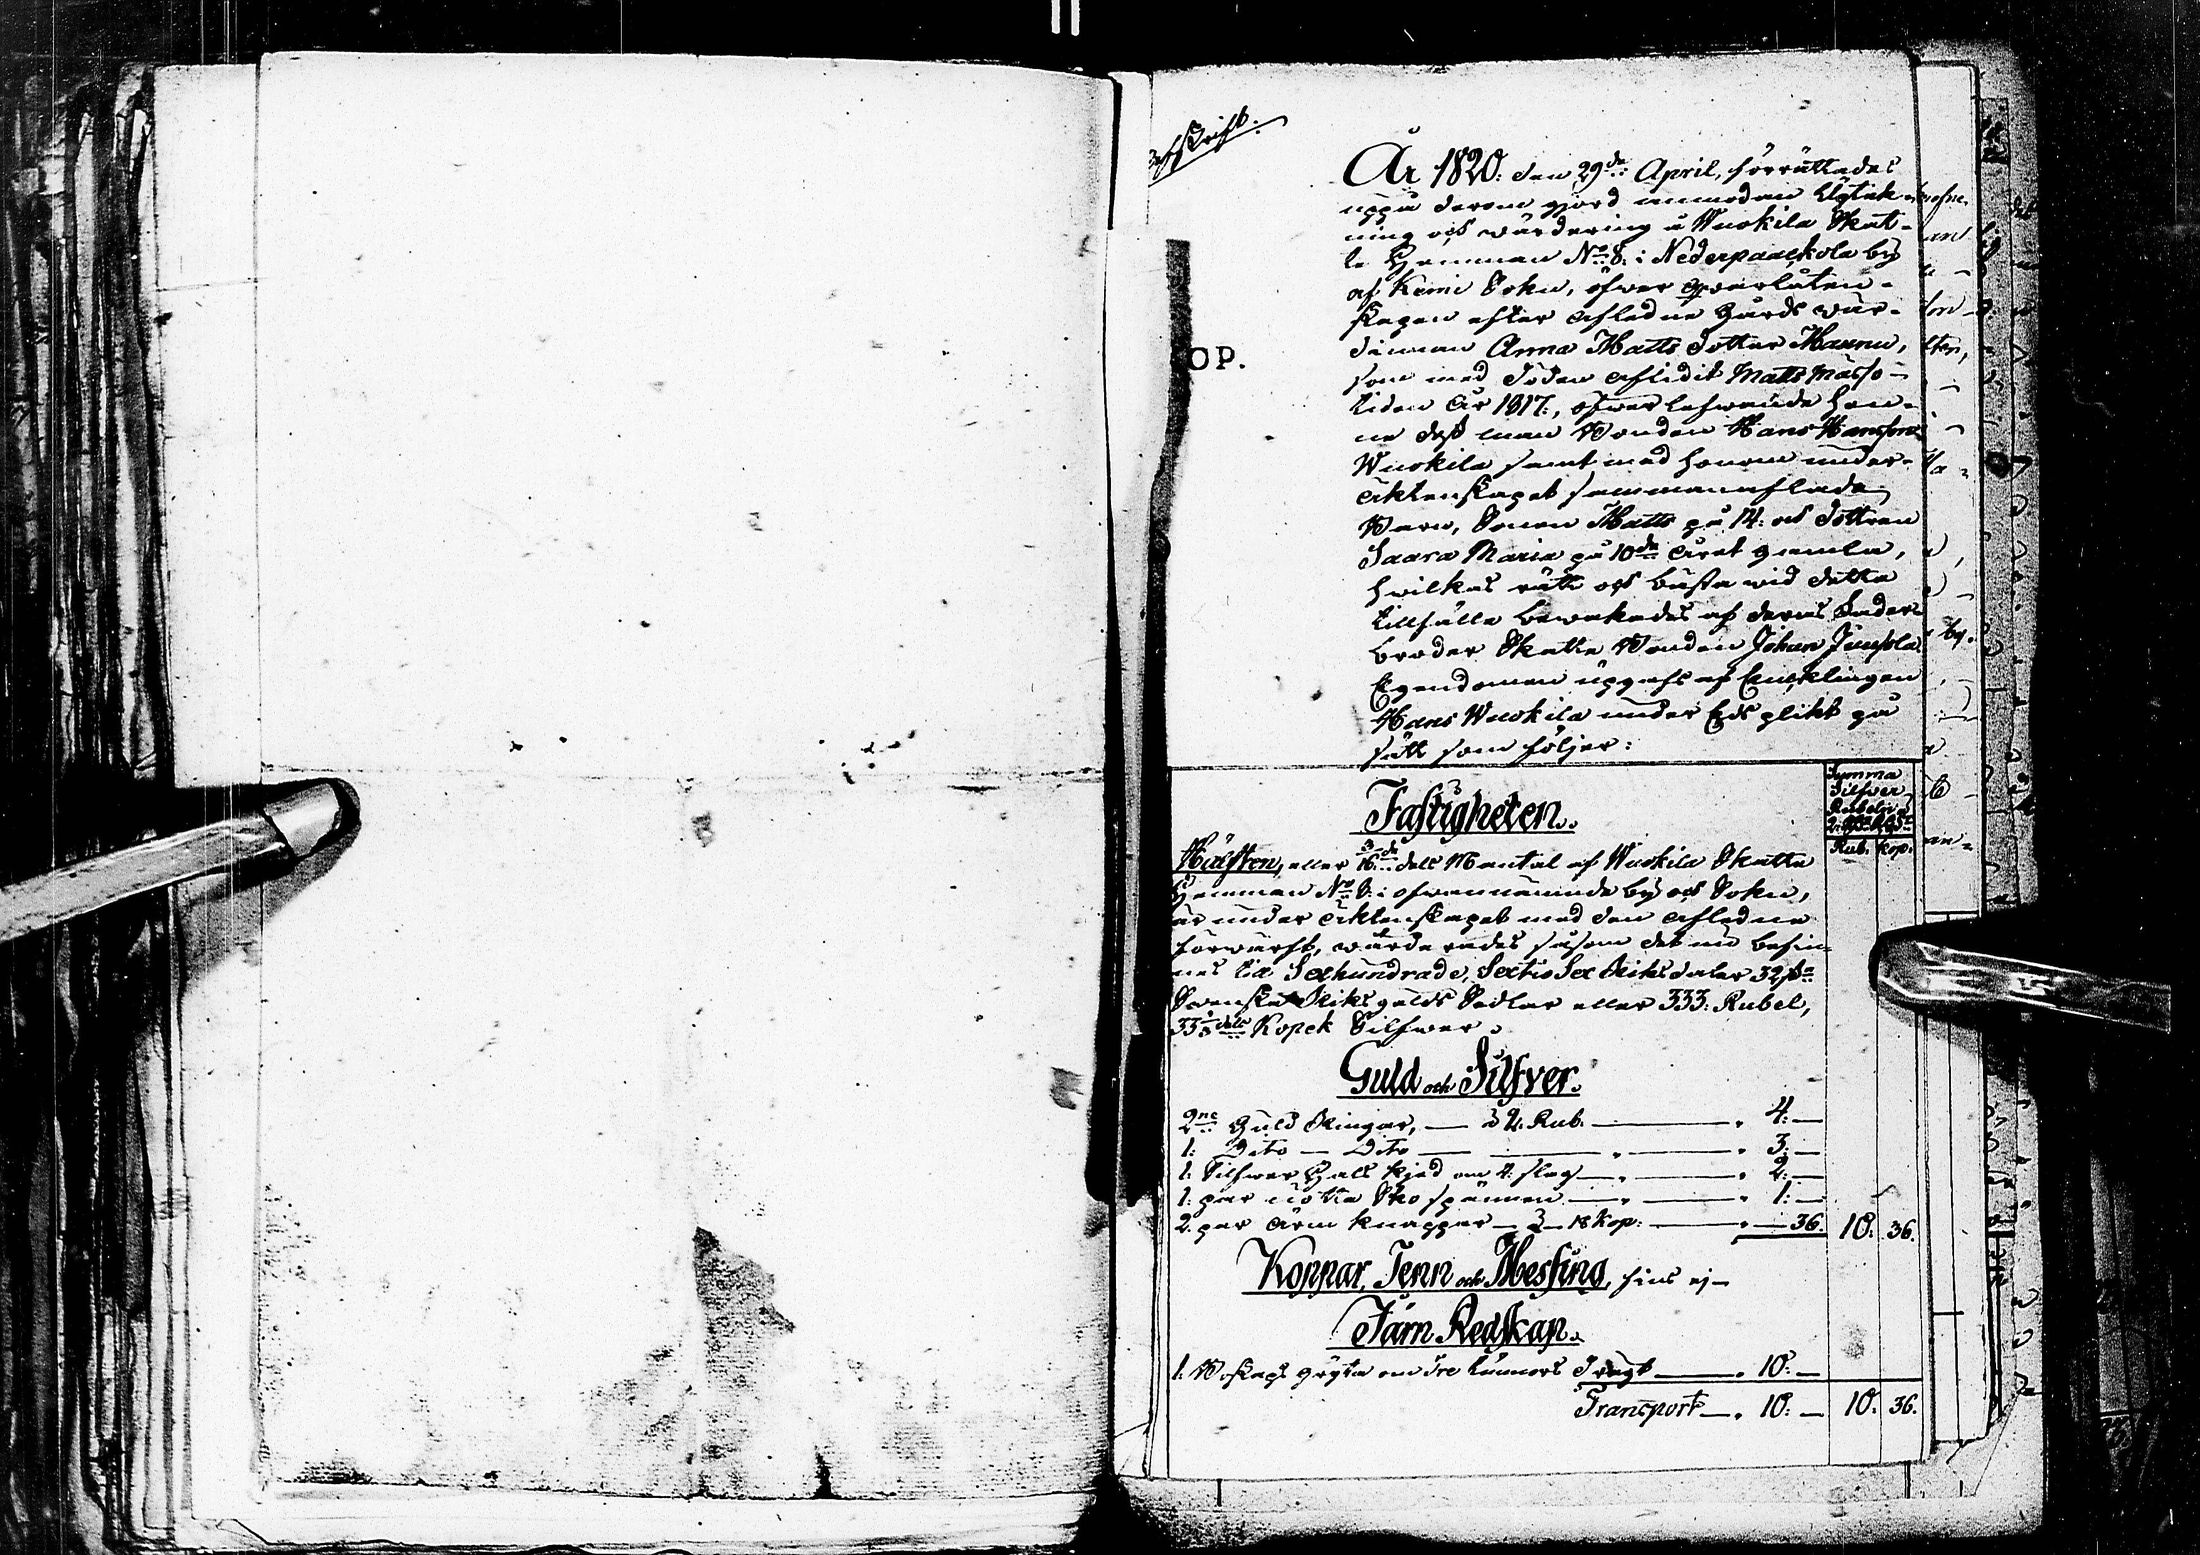 Afskrift.
År 1820. den 29de April, förrättades
uppå derom gjord anmodan Upteck-
ning och wärdering å Wuokila Skat-
te Hemman No 8. i Nederpaackola by
af Kemi Sokn, öfwer qwarlåten-
skapen efter Afledne Gårds wär-
dinnan Anna Matts dotter Mannu,
OP.
som med döden Aflidit Matts mässo-
tiden År 1817., efwerlefwande hen-
ne dess man Bonden Hans Hansson
Wuokila samt med honom under
äktenskapet sammanaflade
Barn, Sonen Matts på 14. och dottren
Saara Maria på 10de året gamla,
hwilkas rätt och bästa wid detta
tillfälle bewakades af deras Fader
broder Skatte Bonden Johan
Egendomen upgafs af Enklingen
Hans Wuokila under Eds plikt på
sätt som följer:
Summa
Silfwer
Rubel
Rub. kop.
Fastigheten.
Hälften, eller 3/16de dels Mantal af Wuokila Skatte
Hemman No 8. i ofwannämnde by och Sokn,
är under äktenskapet med den Afledne
förwärft, wärderades såsom det nu befin-
nes till Sexhundrade, Sextio Sex Riksdaler 32 s.
Swenska Riksgälds Sedlar eller 333. Rubel,
33 1/3 dels Kopek Silfwer.
Guld och Silfver.
2ne Guld Ringar, — à 2. Rub. — 4. —
1. Dito — Dito — 3. —
1. Silfwer Hals kjed om 4. slag — 2. —
1. par dito Sko spännen — 1. —
2. par Arm knappar — à 18 kop. — 36. 10. 36.
Koppar, Tenn och Messing, fins ej —
Järn Redskap.
1. Boskaps gryta om Tre Tunnors drägt — 10. —
Transport — 10. — 10. 36.